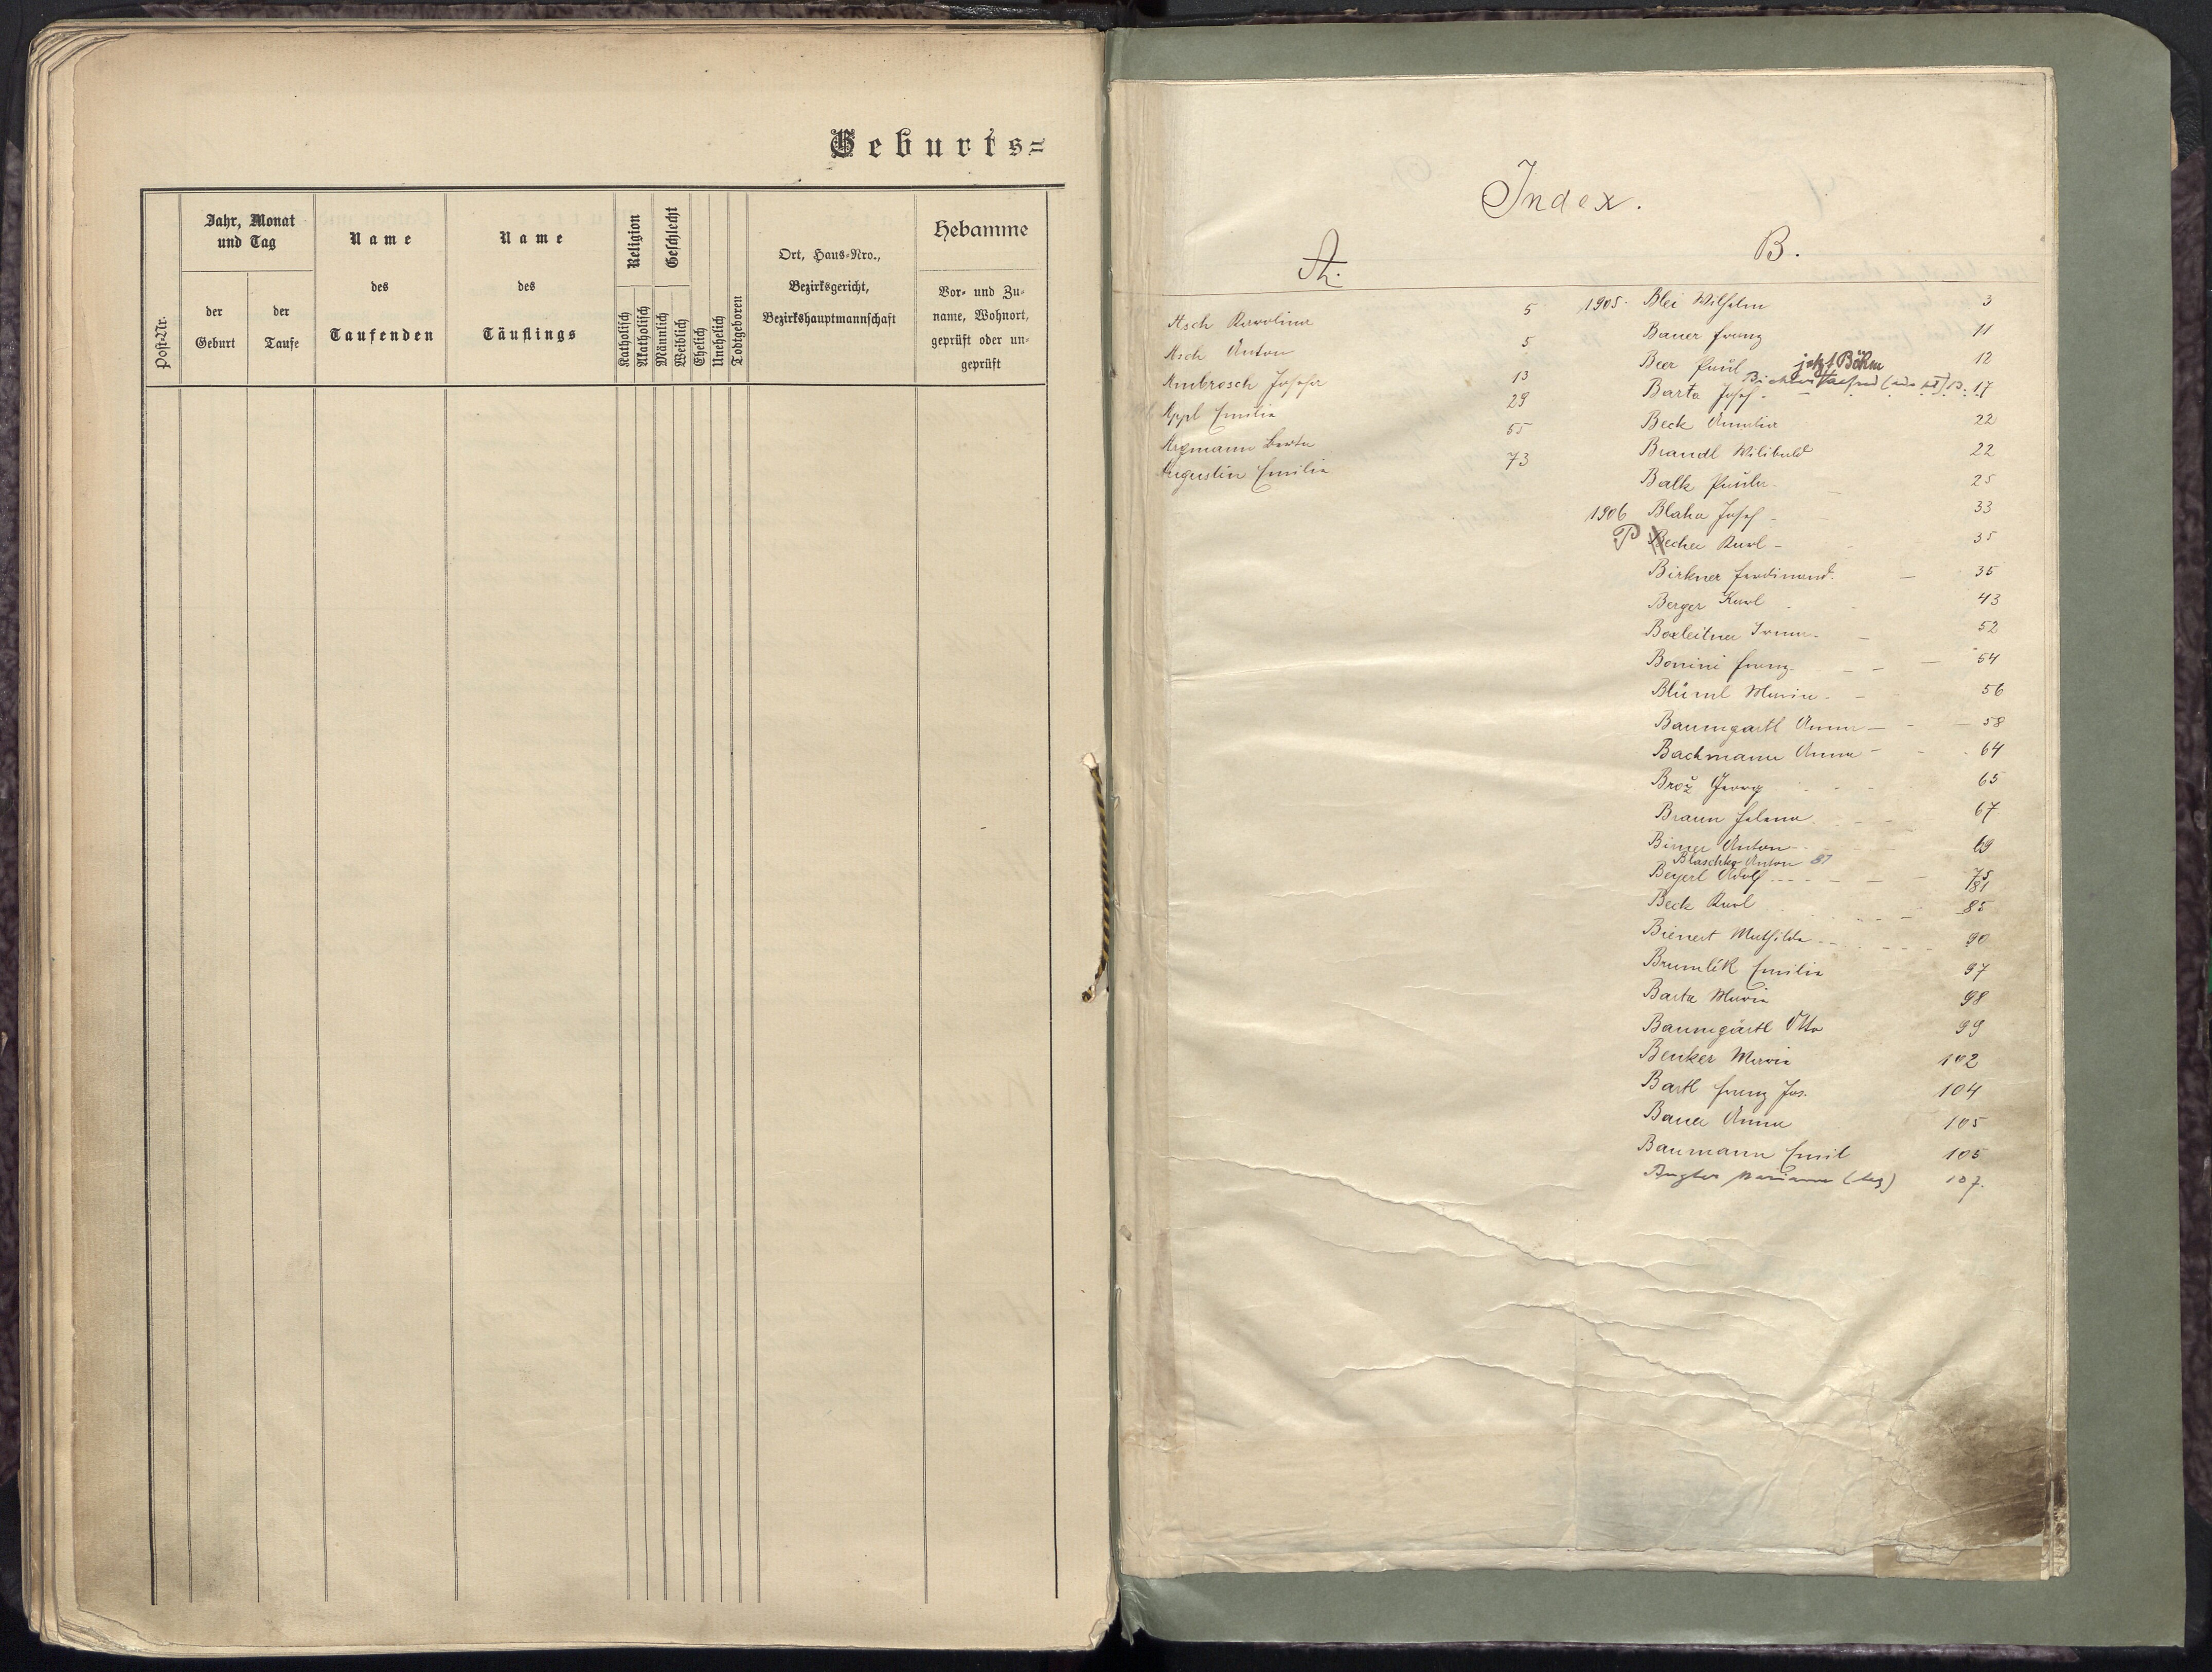 Geburts=
Post-Nr.
Jahr, Monat
und Tag
der
Geburt
der
Taufe
Name
des
Taufenden
Name
des
Täuflings
Religion
Katholisch
Akatholisch
Geschlecht
Männlich
Weiblich
Ehelich
Unehelich
Todtgeboren
Ort, Haus-Nro.,
Bezirksgericht,
Bezirkshauptmannschaft
Hebamme
Vor- und Zu-
name, Wohnort,
geprüft oder un-
geprüft
Index.
A.
Asch Karolina 5
Asch Anton 5
Ambrosch Josefa 13
Appl Emilie 29
Argmann Berta 65
Augustin Emilie 73
B.
1905. Blei Wilhelm 3
Bauer Franz 11
Beer Paul jetzt Böhm 12
Barta Josef 17
Beck Amalia 22
Brandl Wilibald 22
Balk Paula 25
1906 Blaha Josef 33
P Becher Karl 35
Birkner Ferdinand. 35
Berger Karl 43
Boxleitner Irma. 52
Bonini Franz 54
Blüml Maria 56
Baumgartl Anna 58
Bachmann Anna 64
Brož Georg 65
Braun Helena 67
Birner Anton 69
Blaschke Anton 81
Beyerl Adolf 75
81
Beck Karl 85
Bienert Mathilde 90
Brumlik Emilie 97
Barta Maria 98
Baumgärtl Otto 99
Benker Maria 102
Bartl Franz Jos. 104
Bauer Anna 105
Baumann Emil 105
107.